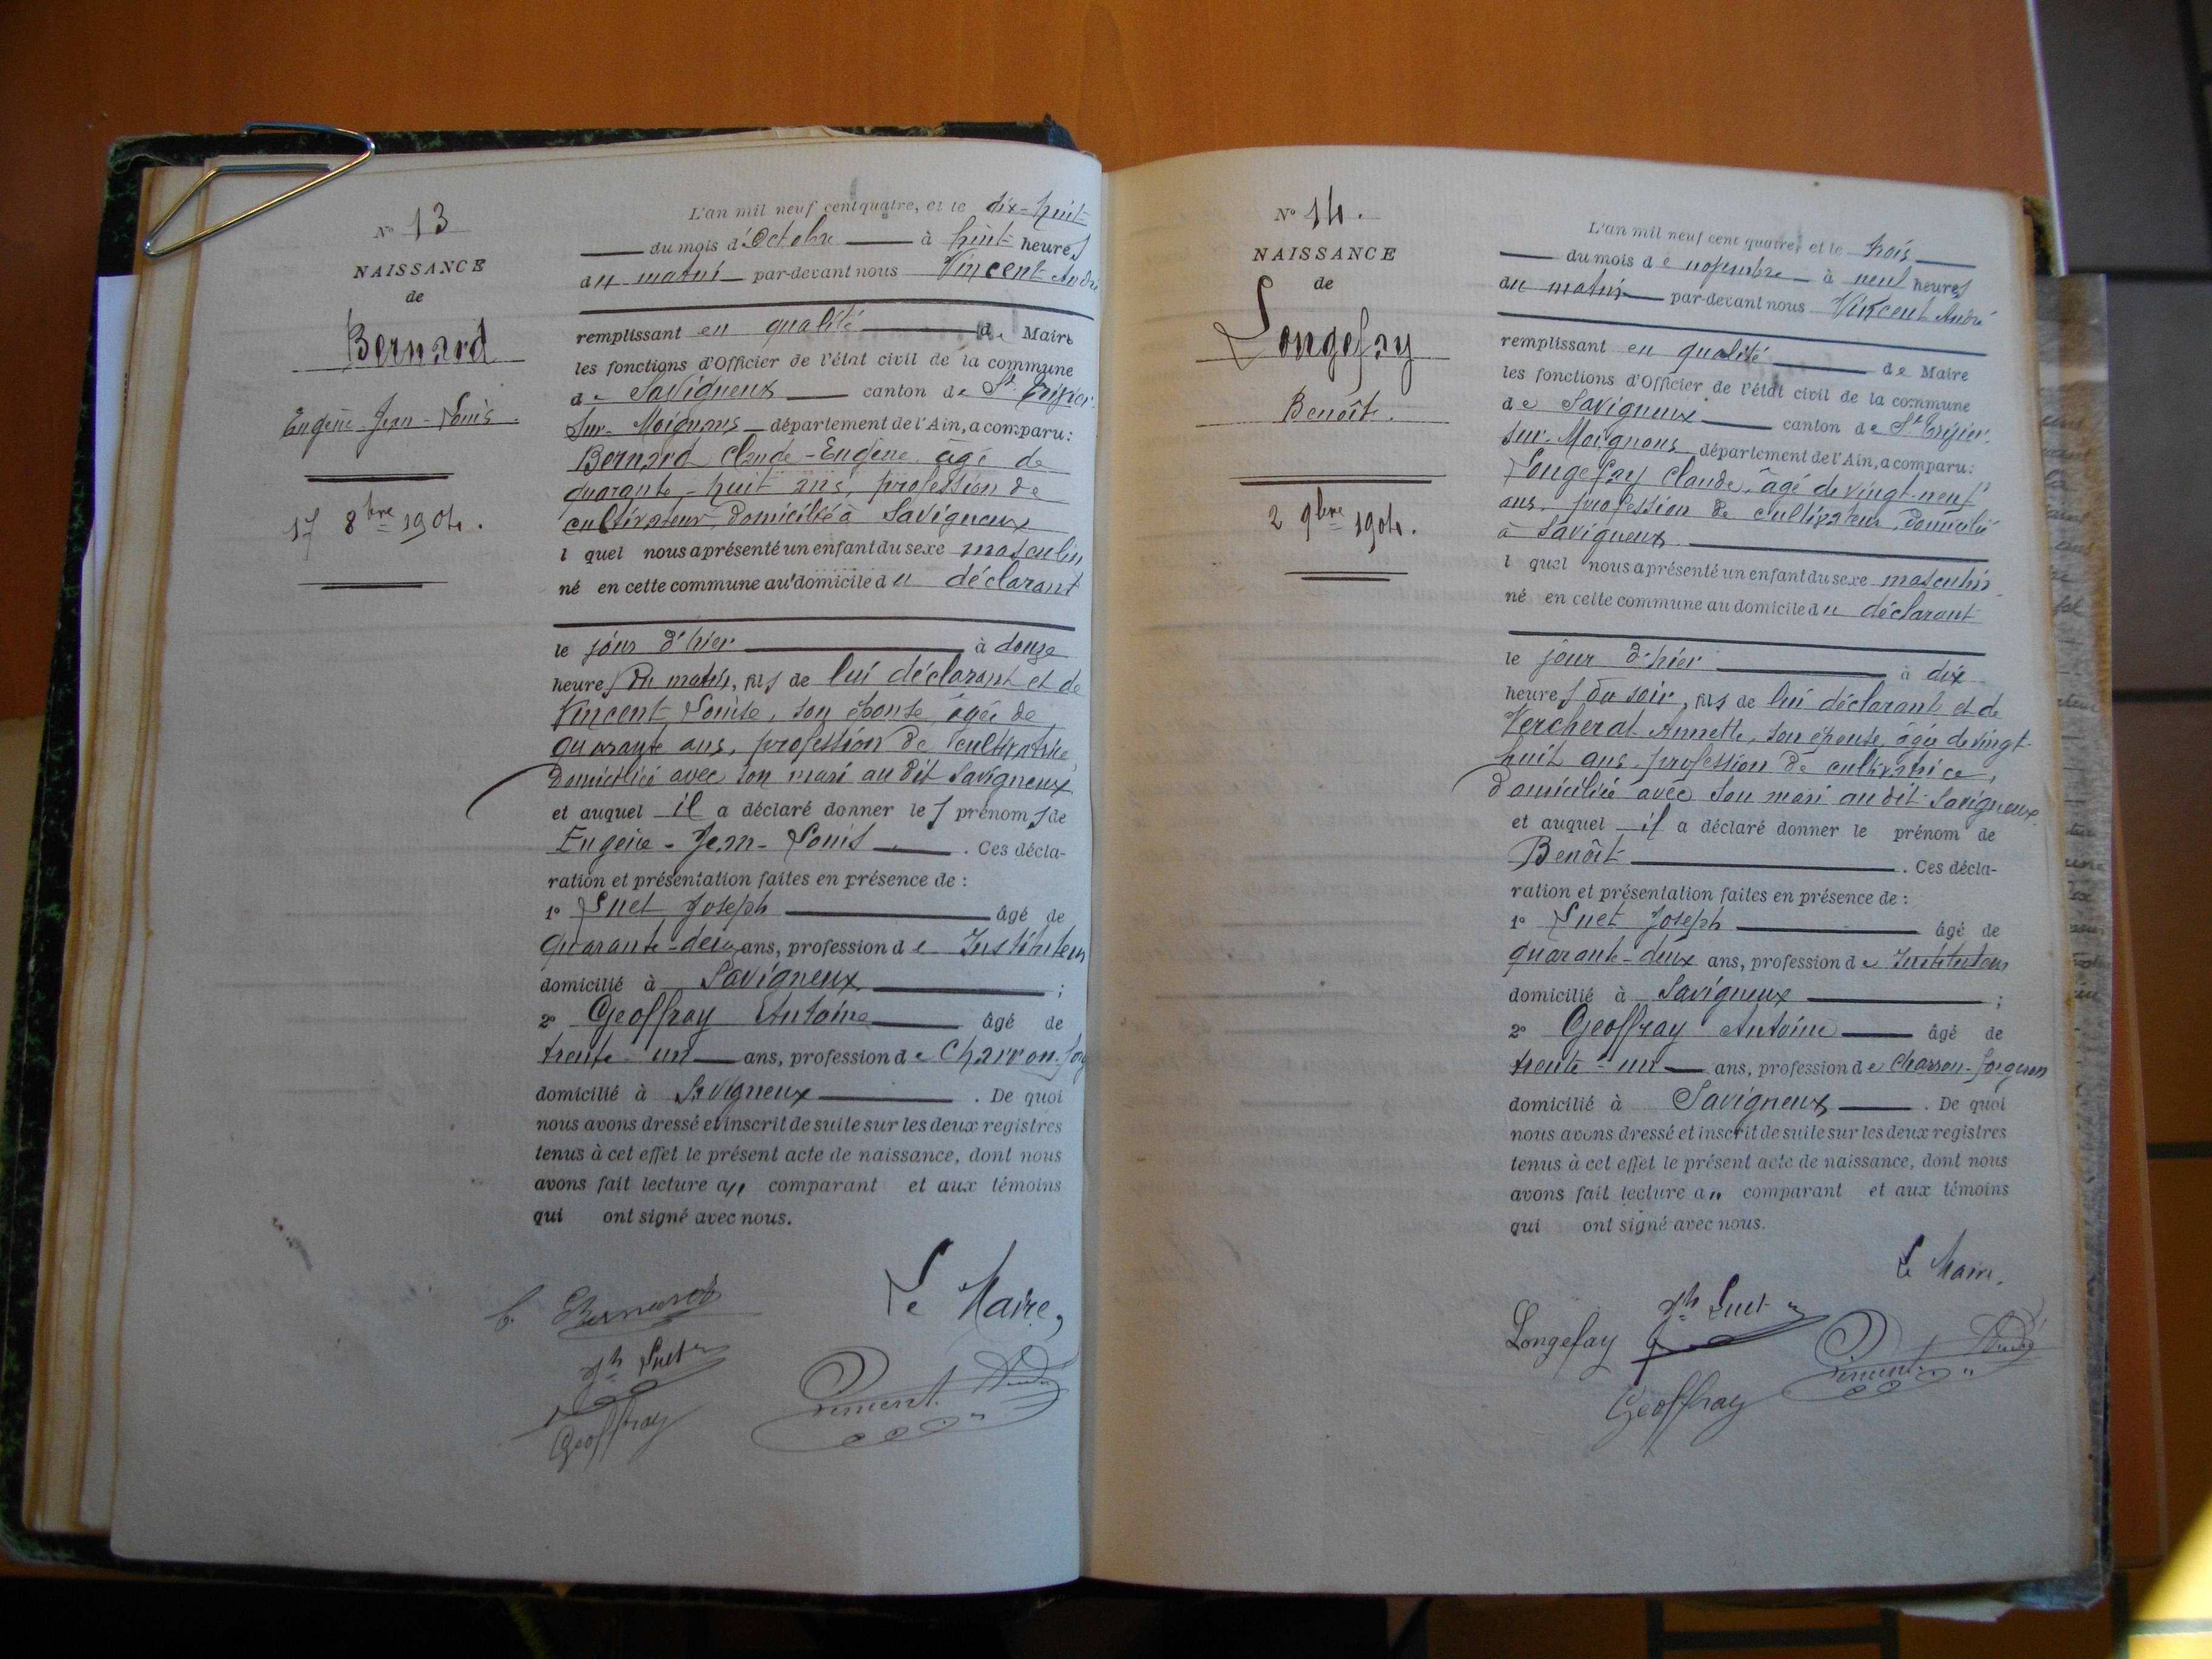 N° 13
NAISSANCE
de
Bernard
Eugène-Jean-Louis.
17 8bre 1904.
L'an mil neuf cent quatre, et le dix-huit
du mois d'Octobre à huit heures
du matin par-devant nous Vincent André
remplissant en qualité de Maire
les fonctions d'Officier de l'état civil de la commune
de Savigneux canton de St Trivier
sur-Moignans département de l'Ain, a comparu:
Bernard Claude-Eugène âgé de
quarante-huit ans, profession de
cultivateur, domicilié à Savigneux
lequel nous a présenté un enfant du sexe masculin
né en cette commune au domicile du déclarant
le jour d'hier à douze
heures du matin, fils de lui déclarant et de
Vincent Louise, son épouse, âgée de
quarante ans, profession de cultivatrice,
domiciliée avec son mari au dit Savigneux
et auquel il a déclaré donner les prénoms de
Eugène-Jean-Louis. Ces décla-
ration et présentation faites en présence de :
1° Suet Joseph âgé de
quarante-deux ans, profession de Instituteur
domicilié à Savigneux ;
2° Geoffray Antoine âgé de
trente-un ans, profession de Charron-for
domicilié à Savigneux. De quoi
nous avons dressé et inscrit de suite sur les deux registres
tenus à cet effet le présent acte de naissance, dont nous
avons fait lecture au comparant et aux témoins
qui ont signé avec nous.
Le Maire,
C. Bernard
Jh Suet
Geoffray
Vincent André
N° 14.
NAISSANCE
de
Longefay
Benoît.
2 9bre 1904.
L'an mil neuf cent quatre, et le trois
du mois de novembre à neuf heures
du matin par-devant nous Vincent André
remplissant en qualité de Maire
les fonctions d'Officier de l'état civil de la commune
de Savigneux canton de St Trivier
sur-Moignans département de l'Ain, a comparu:
Longefay Claude, âgé de vingt-neuf
ans, profession de cultivateur, domicilié
à Savigneux.
lequel nous a présenté un enfant du sexe masculin
né en cette commune au domicile du déclarant
le jour d'hier à dix
heures du soir, fils de lui déclarant et de
Vercherat Annette, son épouse, âgée de vingt-
huit ans, profession de cultivatrice,
domiciliée avec son mari au dit Savigneux
et auquel il a déclaré donner le prénom de
Benoît. Ces décla-
ration et présentation faites en présence de :
1° Suet Joseph âgé de
quarante-deux ans, profession de Instituteur
domicilié à Savigneux ;
2° Geoffray Antoine âgé de
trente-un ans, profession de Charron-forgeron
domicilié à Savigneux. De quoi
nous avons dressé et inscrit de suite sur les deux registres
tenus à cet effet le présent acte de naissance, dont nous
avons fait lecture au comparant et aux témoins
qui ont signé avec nous.
Le Maire,
Longefay
Jh Suet
Geoffray
Vincent André